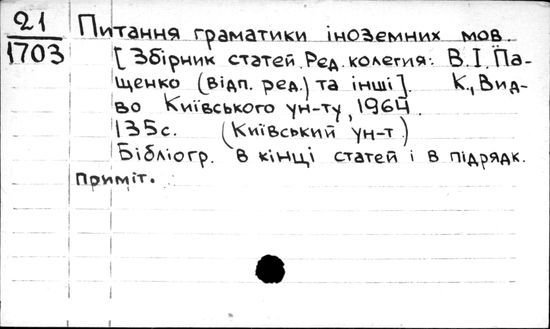 21
1703
Питання граматики іноземних мов.
[Збірник статей. Ред. колегия: В.І. Па-
щенко (відп. ред.) та інші]. К., Вид-
во Київського ун-ту, 1964.
135с. (Київський ун-т)
Бібліогр. в кінці статей і в підрядк.
приміт.